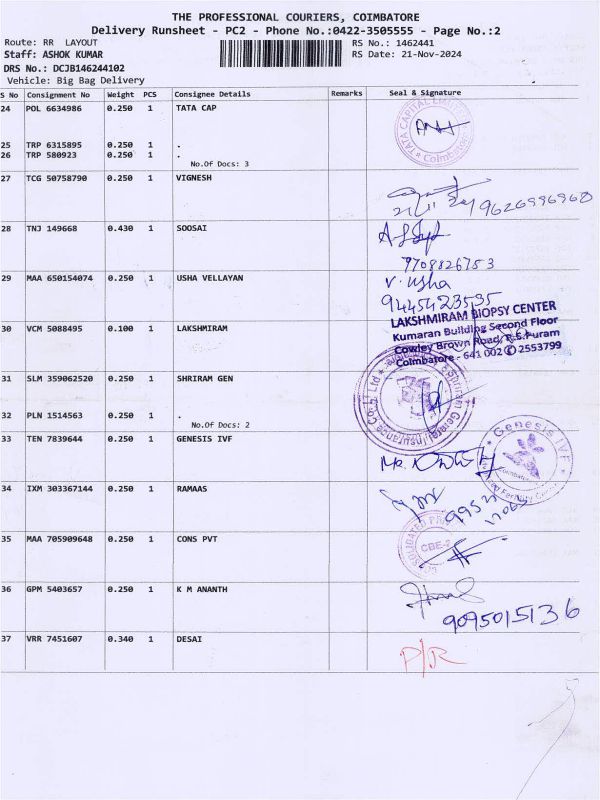 THE PROFESSIONAL COURIERS, COIMBATORE
Delivery Runsheet - PC2 - Phone No.:0422-3505555 - Page No.:2
Route: RR LAYOUT RS No.: 1462441
Staff: ASHOK KUMAR RS Date: 21-Nov-2024
DRS No.: DCJB146244102
Vehicle: Big Bag Delivery
S No Consignment No Weight PCS Consignee Details Remarks Seal & Signature
24 POL 6634986 0.250 1 TATA CAP
TATA CAPITAL LIMITED
Coimbatore
25 TRP 6315895 0.250 1 .
26 TRP 580923 0.250 1 .
No.Of Docs: 3
27 TCG 50758790 0.250 1 VIGNESH
9626996968
28 TNJ 149668 0.430 1 SOOSAI
9708826753
29 MAA 650154074 0.250 1 USHA VELLAYAN
V. Usha
9445423535
30 VCM 5088495 0.100 1 LAKSHMIRAM
LAKSHMIRAM BIOPSY CENTER
Kumaran Building Second Floor
Cowley Brown Road, R.S.Puram
Coimbatore - 641 002 2553799
31 SLM 359062520 0.250 1 SHRIRAM GEN
Shriram General Insurance Co. Ltd
32 PLN 1514563 0.250 1 .
No.Of Docs: 2
33 TEN 7839644 0.250 1 GENESIS IVF
Genesis IVF
Coimbatore
Fertility
34 IXM 303367144 0.250 1 RAMAAS
35 MAA 705909648 0.250 1 CONS PVT
CBE-2
36 GPM 5403657 0.250 1 K M ANANTH
9095015136
37 VRR 7451607 0.340 1 DESAI
P/R